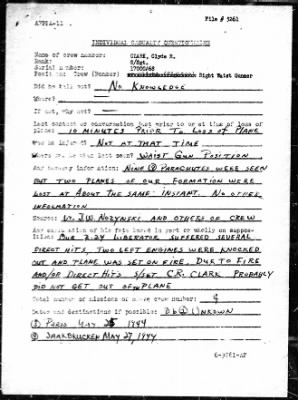 File # 3261
AFPPA-11
INDIVIDUAL CASUALTY QUESTIONNAIRE
Name of crew member: CLARK, Clyde R.
Rank: S/Sgt.
Serial number:
Position: Crew (Bomber) Right Waist Gunner
Did he bail out? No KNOWLEDGE
Where?
If not, why not?
Last contact or conversation just prior to or at time of loss of
plane: 10 MINUTES PRIOR TO LOSS OF PLANE
Was he injured? NOT AT THAT TIME
Where was he last seen? WAIST GUN POSITION
Any hearsay information: NINE @ PARACHUTES WERE SEEN
BUT TWO PLANES OF OUR FORMATION WERE
LOST AT ABOUT THE SAME INSTANT. NO OTHER
INFORMATION
Source: J.W. AND OTHERS OF CREW
Any explanation of his fate based in part or wholly on supposi-
tion: OUR B-24 LIBERATOR SUFFERED SEVERAL
DIRECT HITS. TWO LEFT ENGINES WERE KNOCKED
OUT AND PLANE WAS SET ON FIRE. DUE TO FIRE
AND/OR DIRECT HITS S/SGT. C.R. CLARK PROBABLY
DID NOT GET OUT OF PLANE
Total number of missions of above crew member: 9
Dates and destinations if possible:
MAY 1944
SAARBRUCKEN MAY 27, 1944
6-3861-AF